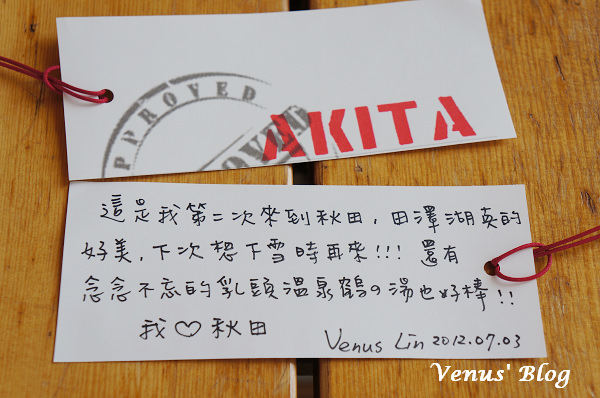 APPROVED
ROVED
AKITA
這是我第二次來到秋田,田澤湖真的
好美,下次想下雪時再來!!! 還有
念念不忘的乳頭溫泉鶴の湯也好棒!!
我♡秋田
Venus Lin 2012.07.03
Venus' Blog